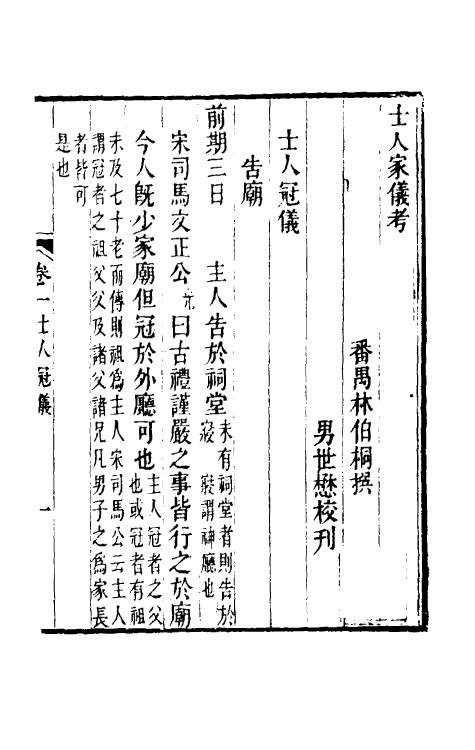 士人家儀考
番禺林伯桐撰
男世懋校刊
士人冠儀
告廟
前期三日　主人告於祠堂未有祠堂者則告於
寢　寢謂神廳也
宋司馬文正公光曰古禮謹嚴之事皆行之於廟
今人旣少家廟但冠於外廳可也主人冠者之父
也或冠者有祖
未及七十老而傳則祖爲主人宋司馬公云主人
謂冠者之祖父父及諸父諸兄凡男子之爲家長
者皆可
是也
卷一士人冠儀
一